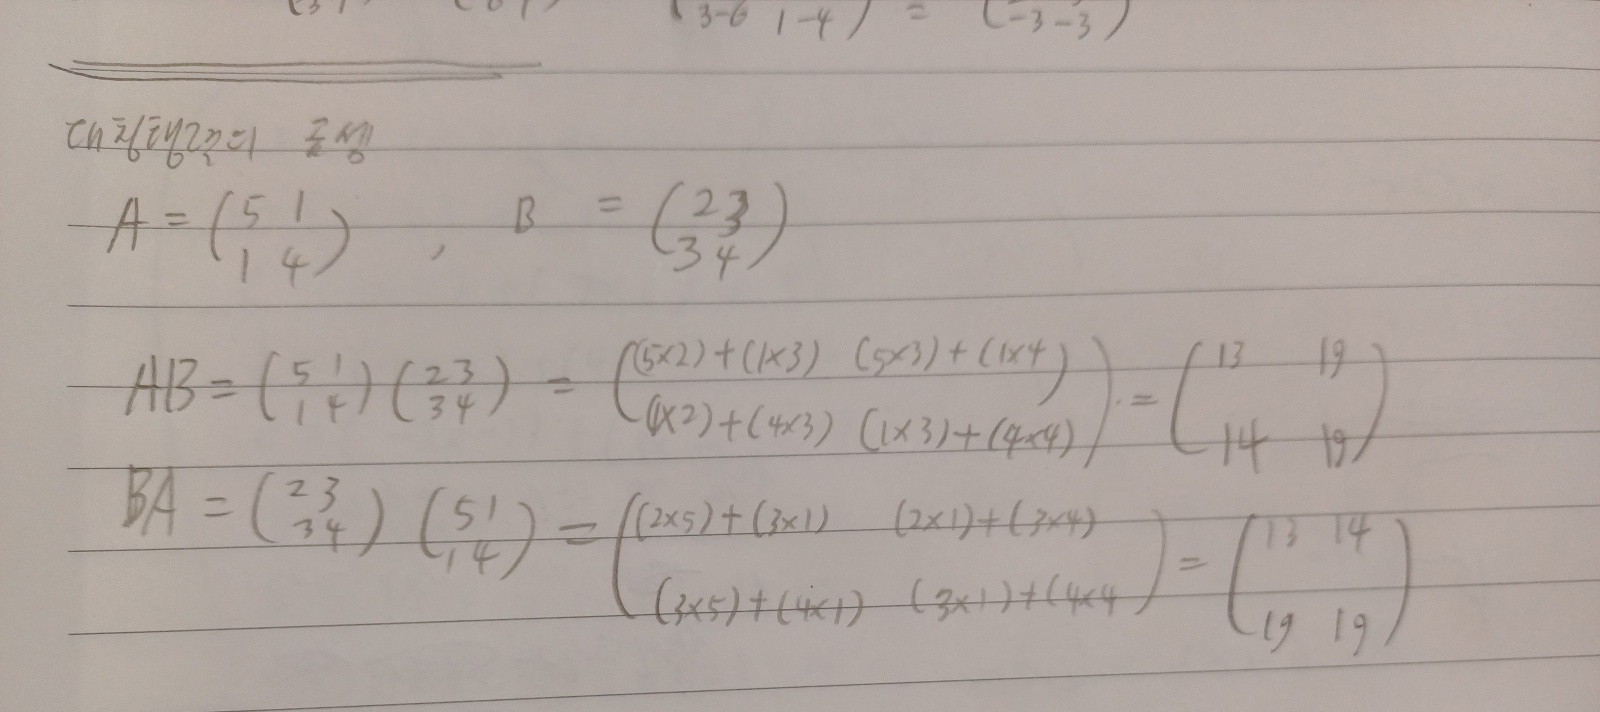 3-6 1-4) = (-3 -3)
대칭행렬의 특성
A = (5 1
1 4) , B = (2 3
3 4)
AB = (5 1
1 4) (2 3
3 4) = ((5×2)+(1×3) (5×3)+(1×4)
(1×2)+(4×3) (1×3)+(4×4)) = (13 19
14 19)
BA = (2 3
3 4) (5 1
1 4) = ((2×5)+(3×1) (2×1)+(3×4)
(3×5)+(4×1) (3×1)+(4×4) = (13 14
19 19)